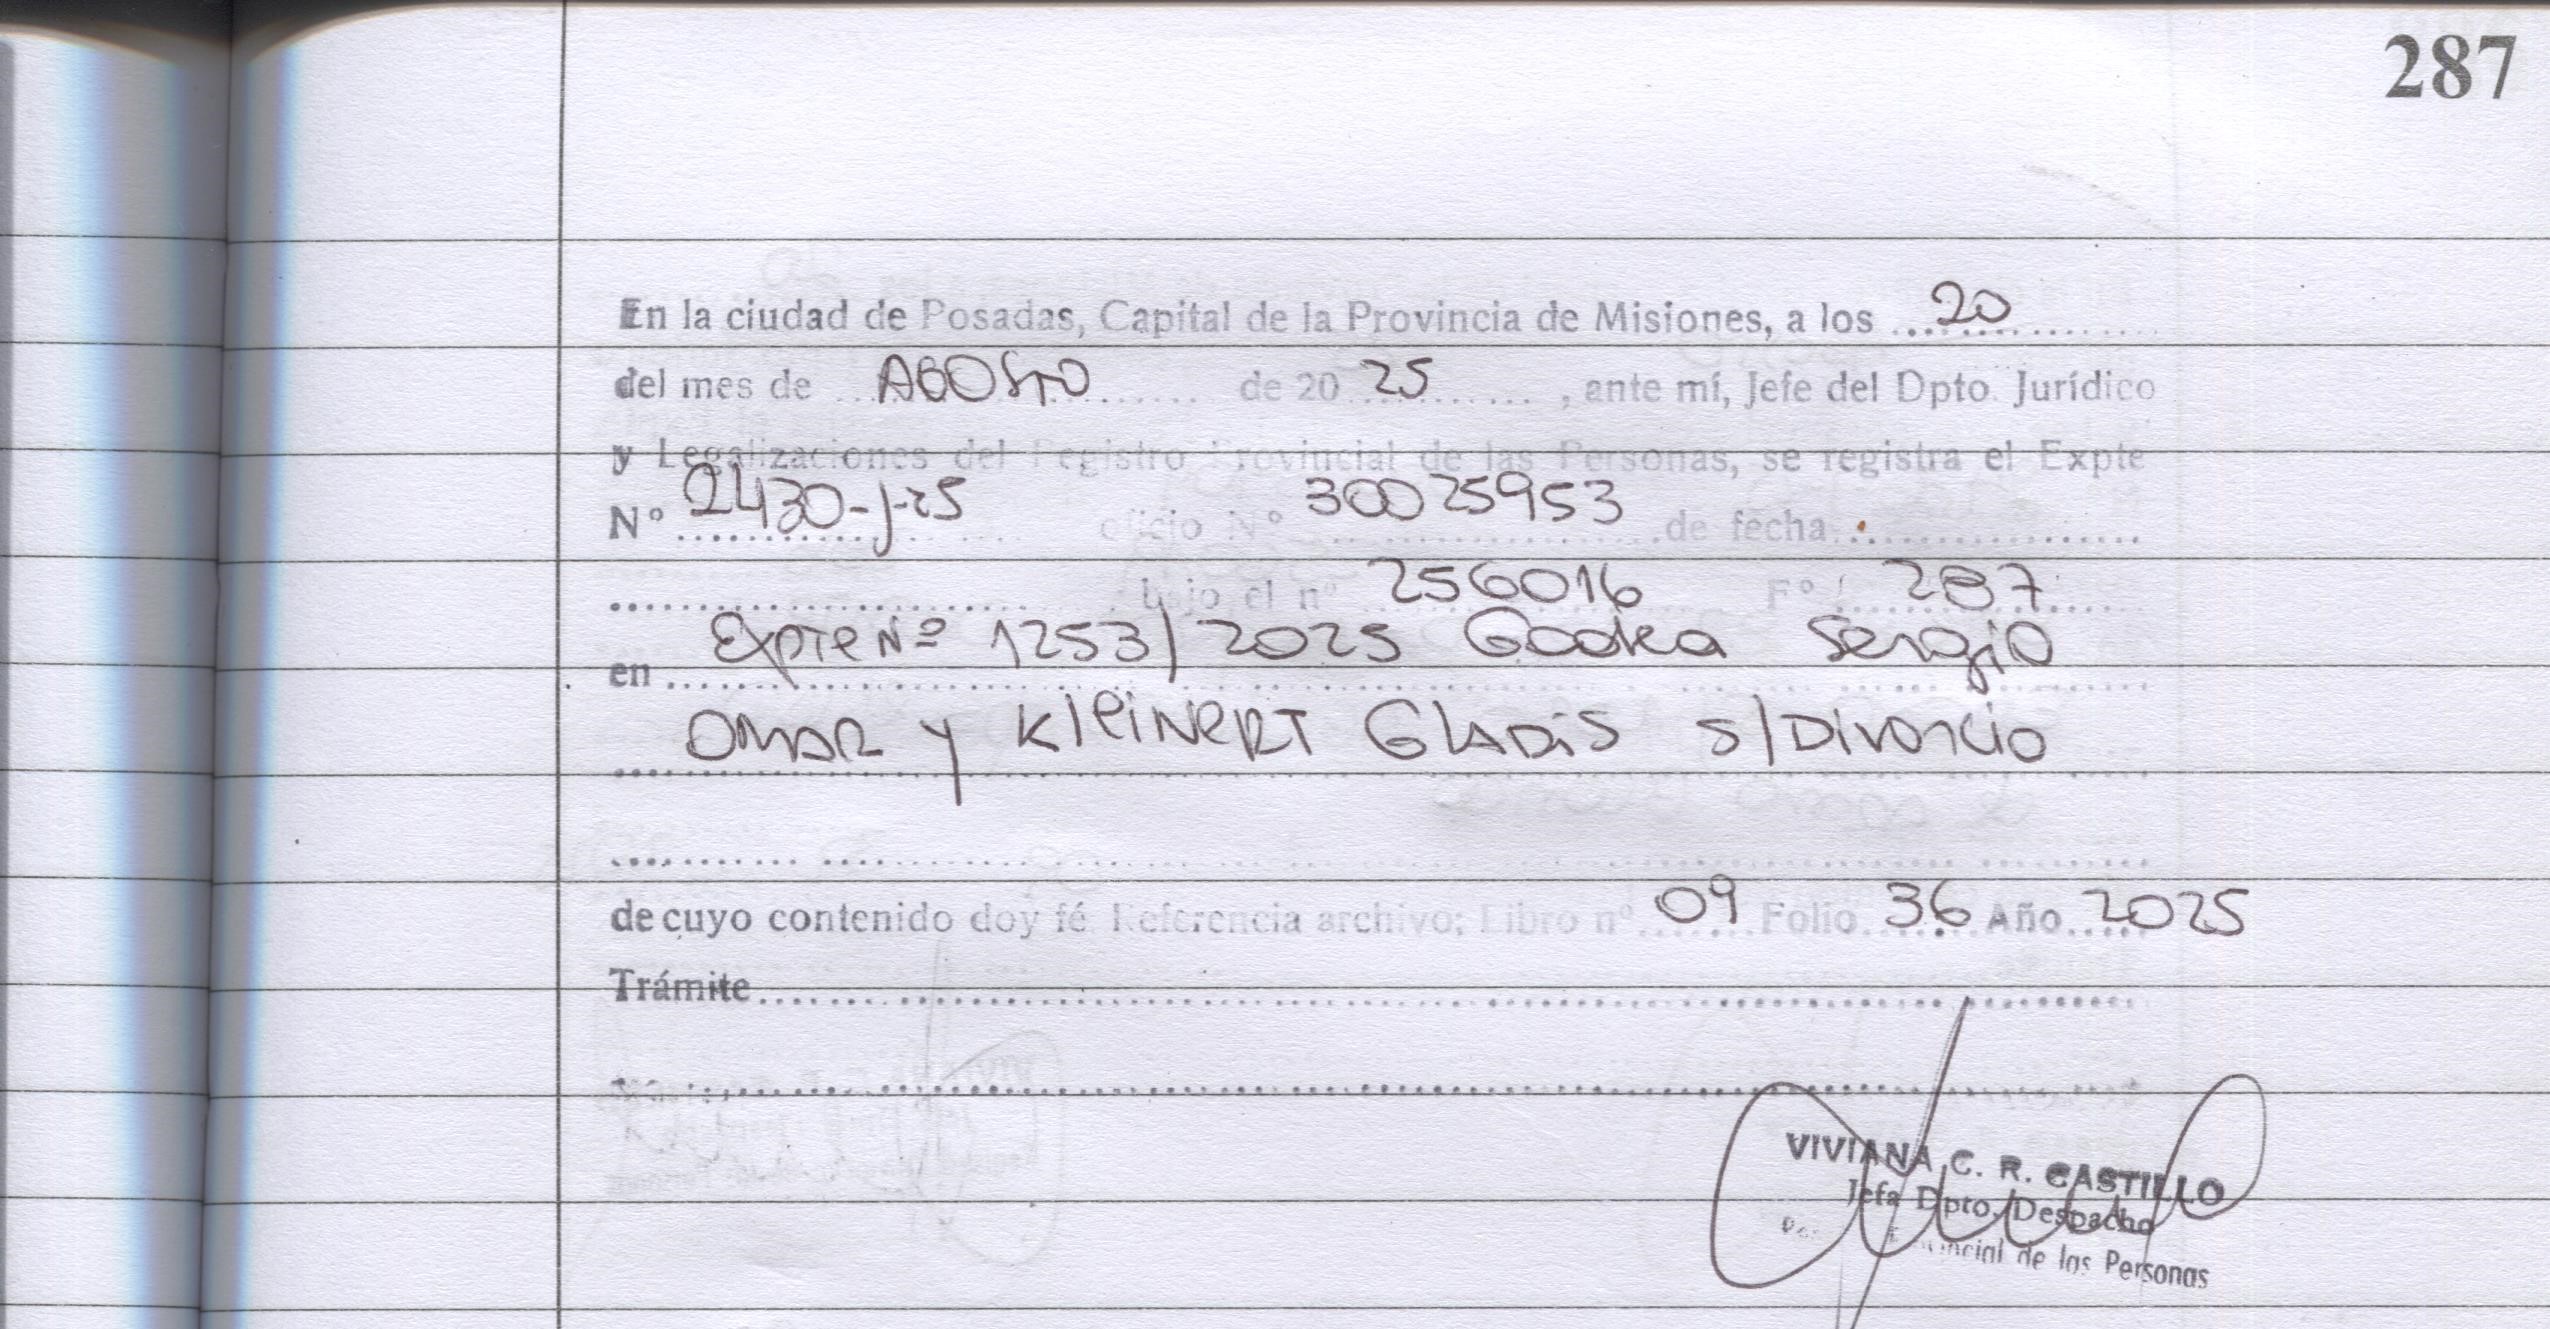 287
En la ciudad de Posadas, Capital de la Provincia de Misiones, a los 20
del mes de AGOSTO de 20 25 , ante mí, Jefe del Dpto. Jurídico
y Legalizaciones del Registro Provincial de las Personas, se registra el Expte
Nº 2430-J-25 oficio Nº 30025953 de fecha
bajo el nº 256016 Fº 287
en Expte Nº 1253/2025 Sergio
OMAR y KleiNeRT GlADiS S/Divorcio
de cuyo contenido doy fé. Referencia archivo; Libro nº 09 Folio 36 Año 2025
Trámite
VIVIANA C. R. CASTILLO
Jefa Dpto. Despacho
Provincial de las Personas